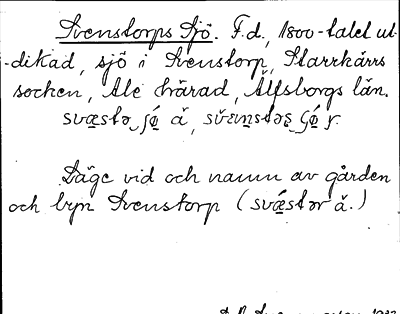 Svenstorps Sjö. F.d., 1800-talet ut-
-dikad, sjö i Svenstorp, Starrkärrs
socken, Ale härad, Älfsborgs län.
Läge vid och namn av gården
och byn Svenstorp